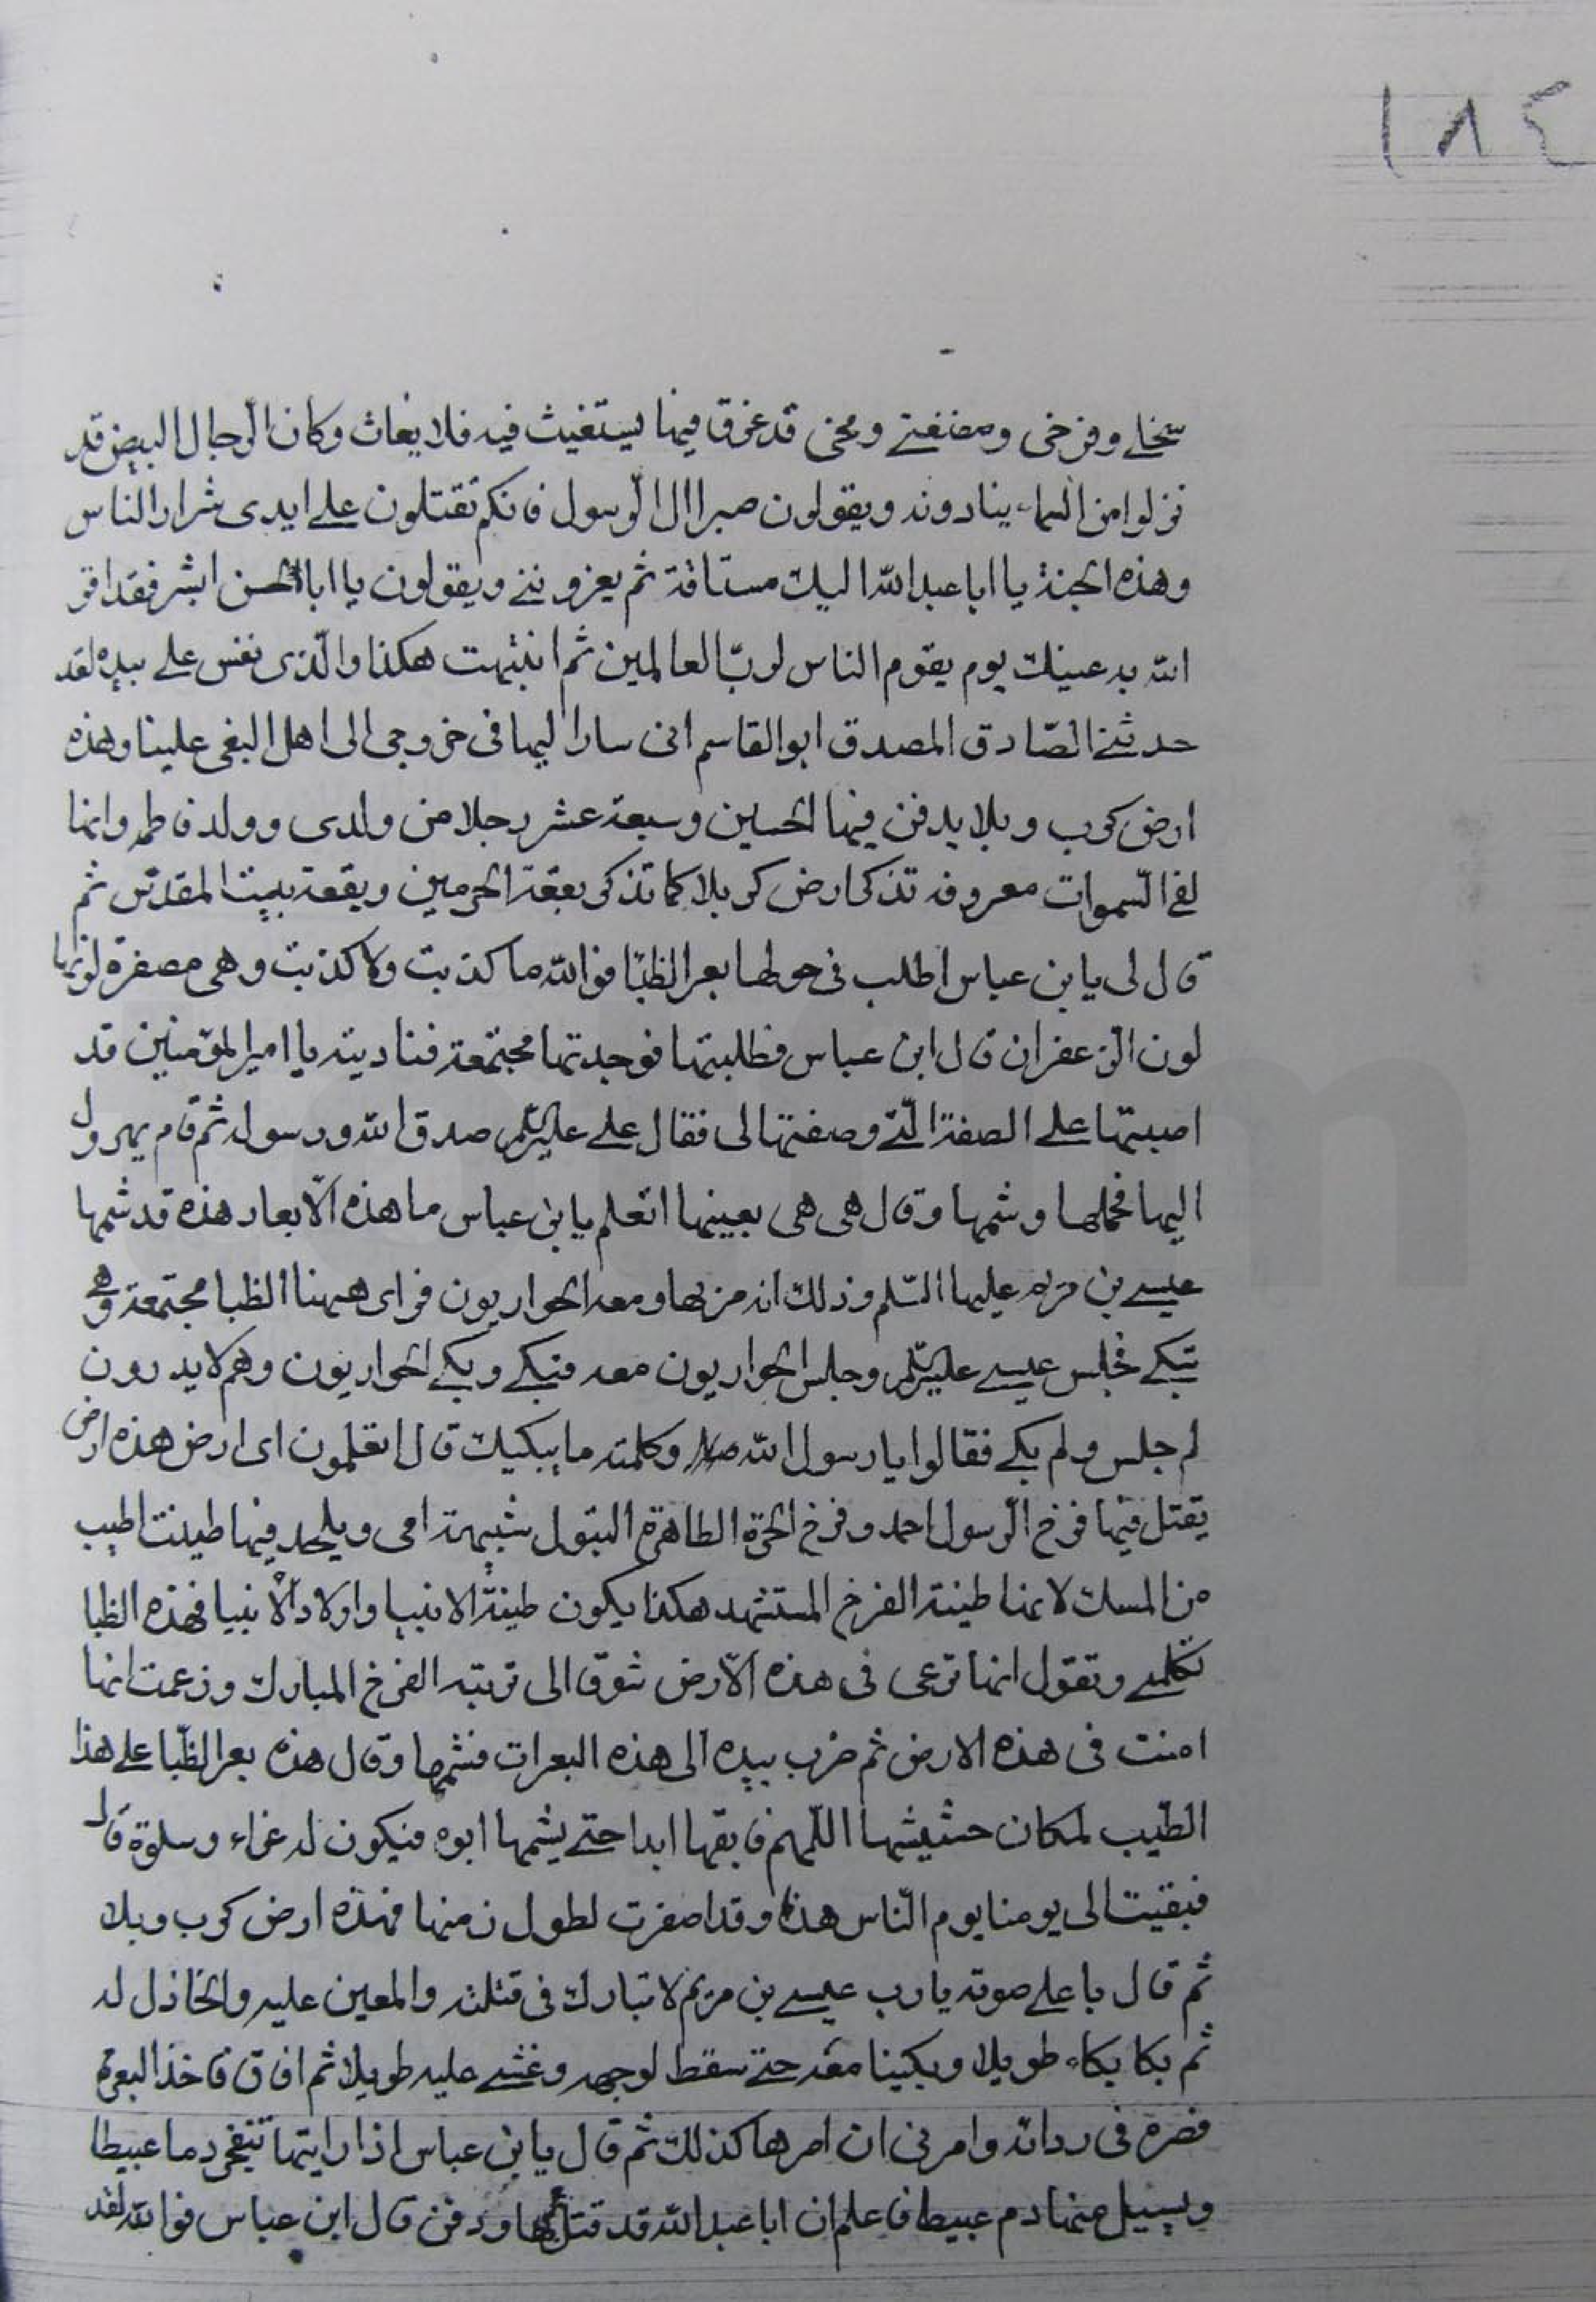 ١٨٤
سخلے وفرخی ومضغتے ومخی قد غرق فيها يستغيث فيه فلا يغاث وكان الرجال البيض قد
نزلوا من السماء ينادونه ويقولون صبرا ال الرسول فانكم تقتلون علے ايدى شرار الناس
وهذه الجنة يا ابا عبد الله اليك مستاقة ثم يعزوننے ويقولون يا ابا الحسن ابشر فقد اقر
الله به عينك يوم يقوم الناس لرب العالمين ثم انتبهت هكذا والذى نفس علے بيده لقد
حدثنے الصادق المصدق ابوالقاسم انى ساراليها فى خروجى الى اهل البغى علينا وهذه
ارض كرب وبلا يدفن فيها الحسين وسبعة عشر رجلا من ولدى وولد فاطمه وانها
لفے السموات معروفه تذكر ارض كربلا كما تذكر بقعة الحرمين وبقعة بيت المقدس ثم
قال لى يا بن عباس اطلب فى حولها بعر الظبا فوالله ما كذبت ولا كذبت وهى مصفرة لونها
لون الزعفران قال ابن عباس فطلبتها فوجدتها مجتمعة فناديته يا امير المؤمنين قد
اصبتها علے الصفة التے وصفتها لى فقال علے عليه السلم صدق الله ورسوله ثم قام يهرول
اليها فحملها وشمها وقال هى هى بعينها اتعلم يا بن عباس ما هذه الابعار هذه قد شمها
عيسے بن مريم عليهما السلم وذلك انه مر بها ومعه الحواريون فراى ههنا الظبا مجتمعة وهے
تبكے فجلس عيسے عليه السلم وجلس الحواريون معه فبكے وبكے الحواريون وهم لا يدرون
لم جلس ولم بكے فقالوا يا رسول الله وكلمته ما يبكيك قال اتعلمون اى ارض هذه ارض
يقتل فيها فرخ الرسول احمد وفرخ الحرة الطاهرة البتول شبيهة امى ويلحد فيها طينت اطيب
من المسك لانها طينة الفرخ المستشهد هكذا يكون طينة الانبيا واولاد الانبيا فهذه الظبا
تكلمے وتقول انها ترعى فى هذه الارض شوقا الى تربته الفرخ المبارك وزعمت انها
امنت فى هذه الارض ثم ضرب بيده الى هذه البعرات فشمها وقال هذه بعر الظبا علے هذا
الطيب لمكان حشيشها اللهم فابقها ابدا حتے يشمها ابوه فيكون له عزاء وسلوة قال
فبقيت الى يومنا يوم الناس هذا وقد اصفرت لطول زمنها فهذه ارض كرب وبلا
ثم قال با علے صوته يا رب عيسے بن مريم لا تبارك فى قتلته والمعين عليه والخاذل له
ثم بكا بكاء طويلا وبكينا معه حتے سقط لوجهه وغشے عليه طويلا ثم افاق فاخذ البعر
فصره فى ردائه وامرنى ان اصرها كذلك ثم قال يا بن عباس اذا رايتها تنفجر دما عبيطا
ويسيل منها دم عبيط فاعلم ان ابا عبد الله قد قتل بها ودفن قال ابن عباس فوالله لقد